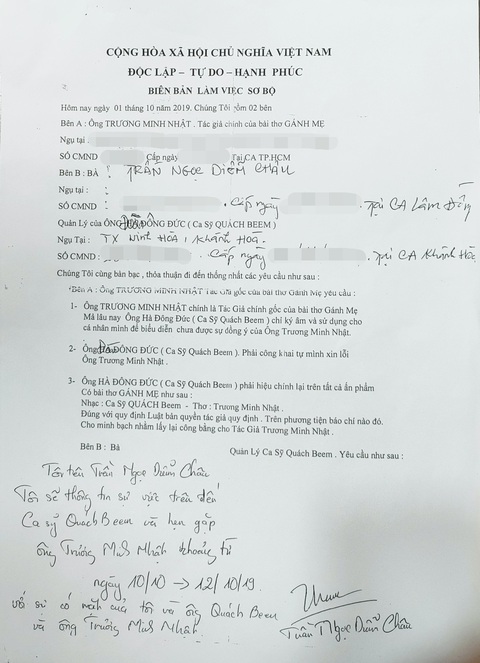 CỘNG HÒA XÃ HỘI CHỦ NGHĨA VIỆT NAM
ĐỘC LẬP – TỰ DO – HẠNH PHÚC
BIÊN BẢN LÀM VIỆC SƠ BỘ
Hôm nay ngày 01 tháng 10 năm 2019. Chúng Tôi gồm 02 bên
Bên A : Ông TRƯƠNG MINH NHẬT . Tác giả chính của bài thơ GÁNH MẸ
Ngụ tại :
SỐ CMND Cấp ngày Tại CA TP.HCM
Bên B : BÀ : TRẦN NGỌC DIỄM CHÂU
Ngụ tại :
SỐ CMND : . Cấp ngày . Tại CA Lâm Đồng
Quản Lý của ÔNG ĐÔNG ĐỨC ( Ca Sỹ QUÁCH BEEM )
Ngụ Tại : TX Ninh HÒA , Khánh Hoà.
SỐ CMND : Cấp ngày . Tại CA Khánh Hòa
Chúng Tôi cùng bàn bạc , thỏa thuận đi đến thống nhất các yêu cầu như sau :
*Bên A : Ông TRƯƠNG MINH NHẬT Tác Giả gốc của bài thơ Gánh Mẹ yêu cầu :
1- Ông TRƯƠNG MINH NHẬT chính là Tác Giả chính gốc của bài thơ Gánh Mẹ
Mà lâu nay Ông Hà Đông Đức ( Ca Sỹ Quách Beem ) chỉ ký âm và sử dụng cho
cá nhân mình để biểu diễn chưa được sự đồng ý của Ông Trương Minh Nhật.
2- Ông ĐÔNG ĐỨC ( Ca Sỹ Quách Beem ). Phải công khai tự mình xin lỗi
Ông Trương Minh Nhật .
3- Ông HÀ ĐÔNG ĐỨC ( Ca Sỹ Quách Beem ) phải hiệu chỉnh lại trên tất cả ấn phẩm
Có bài thơ GÁNH MẸ như sau :
Nhạc : Ca Sỹ QUÁCH BEEM - Thơ : Trương Minh Nhật .
Đúng với quy định Luật bản quyền tác giả quy định . Trên phương tiện báo chí nào đó.
Cho minh bạch nhằm lấy lại công bằng cho Tác Giả Trương Minh Nhật .
Bên B : Bà Quản Lý Ca Sỹ Quách Beem . Yêu cầu như sau :
Tôi tên Trần Ngọc Diễm Châu
Tôi sẽ thông tin sự việc trên đến
Ca sỹ Quách Beem và hẹn gặp
ông Trương Minh Nhật khoảng từ
ngày 10/10 → 12/10/19.
với sự có mặt của tôi và ông Quách Beem
và ông Trương Minh Nhật.
Trần Ngọc Diễm Châu